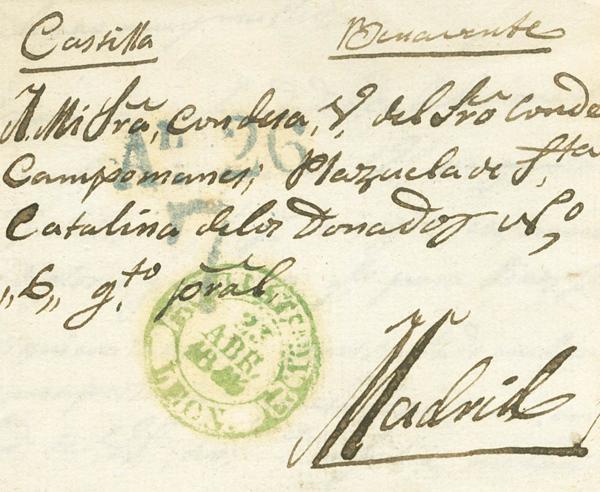 Castilla Benavente
A Mi Sra, Condesa, V, del Sro Conde
Campomanes; Plazuela de Sta
Catalina de los Donados No
"6" qto pral.
Madrid
Abl 26
7
23
ABR.
LEON.